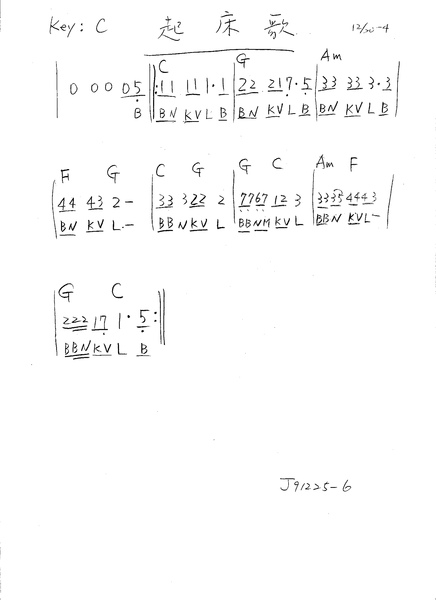 Key: C 起床歌 12/30-4
C G Am
| 0 0 0 05 ‖: 11 11 1·1 | 22 217·5 | 33 33 3·3 |
B BN KV L B BN KV L B BN KV L B
F G C G G C Am F
| 44 43 2- | 33 322 2 | 7767 12 3 | 3335 4443 |
BN KV L- BBN KV L BBNM KV L BBN KVL-
G C
| 222 17 1· 5 :‖
BBN KV L B
J91225-6